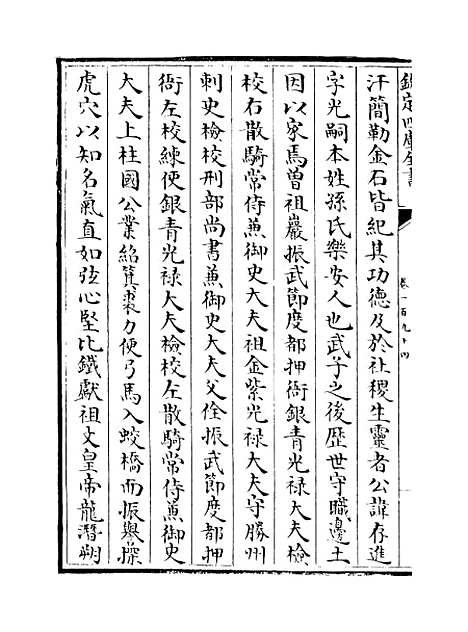 欽定四庫全書
卷一百九十四
汗簡勒金石皆紀其功德及於社稷生靈者公諱存進
字光嗣本姓孫氏樂安人也武子之後歷世守職邊土
因以家焉曾祖巖振武節度都押衙銀青光祿大夫檢
校右散騎常侍兼御史大夫祖金紫光祿大夫守勝州
刺史檢校刑部尚書兼御史大夫父佺振武節度都押
衙左校練使銀青光祿大夫檢校左散騎常侍兼御史
大夫上柱國公業紹箕裘力便弓馬入蛟橋而振譽探
虎穴以知名氣直如弦心堅比鐵獻祖文皇帝龍潛朔